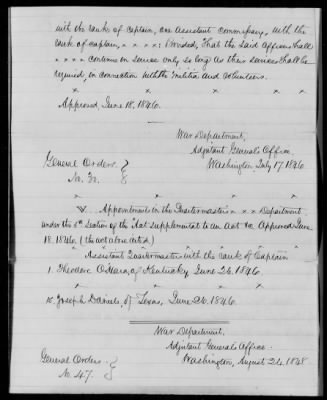 with the rank of captain, one assistant commissary, with the
rank of captain, x x x x: Provided, That the said officers shall
x x x x continue in service only so long as their services shall be
required, in connection with the militia and volunteers.
x x x x x
Approved, June 18, 1846.
War Department,
Adjutant General's Office,
Washington July 17 1846
General Orders }
No.
x x x x
V. Appointments in the Quartermaster's x x x Department
under the 5th section of the "Act supplemental to an act" &c. Approved June
18, 1846. (the act above cited.)
Assistant Quartermaster with the rank of Captain
1. Theodore O'Hara, of Kentucky June 26, 1846.
x x x x x
10. Joseph Daniels, of Texas, June 26, 1846.
War Department,
Adjutant General's Office
Washington, August 24, 1848
General Orders }
No. 47.